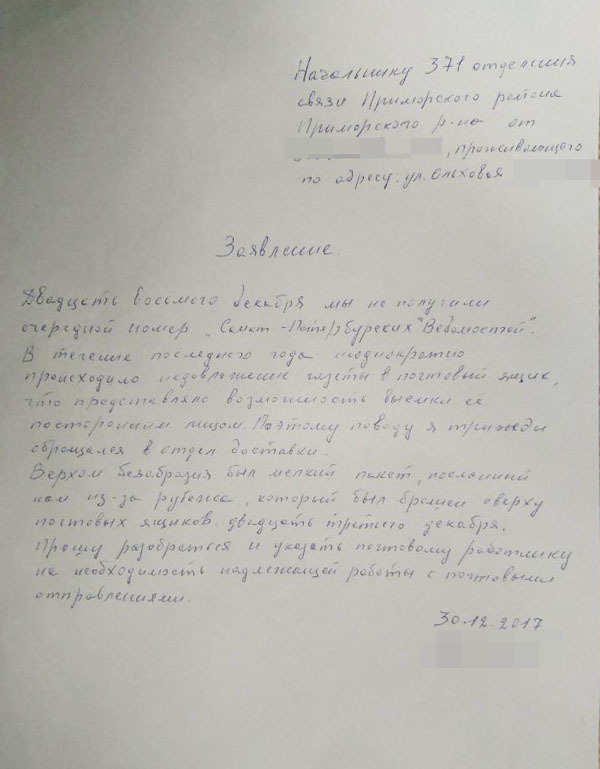 Начальнику 371 отделения
связи Приморского района
Приморского р-на от
, проживающего
по адресу: ул. Ольховая
Заявление.
Двадцать восьмого декабря мы не получили
очередной номер „Санкт-Петербургских "Ведомостей".
В течение последнего года неоднократно
происходило недовложение газеты в почтовый ящик,
что представляло возможность выемки её
посторонним лицом. Поэтому поводу я трижды
обращался в отдел доставки.
Верхом безобразия был мелкий пакет, посланный
нам из-за рубежа, который был брошен сверху
почтовых ящиков двадцать третьего декабря.
Прошу разобраться и указать почтовому работнику
на необходимость надлежащей работы с почтовыми
отправлениями.
30.12.2017